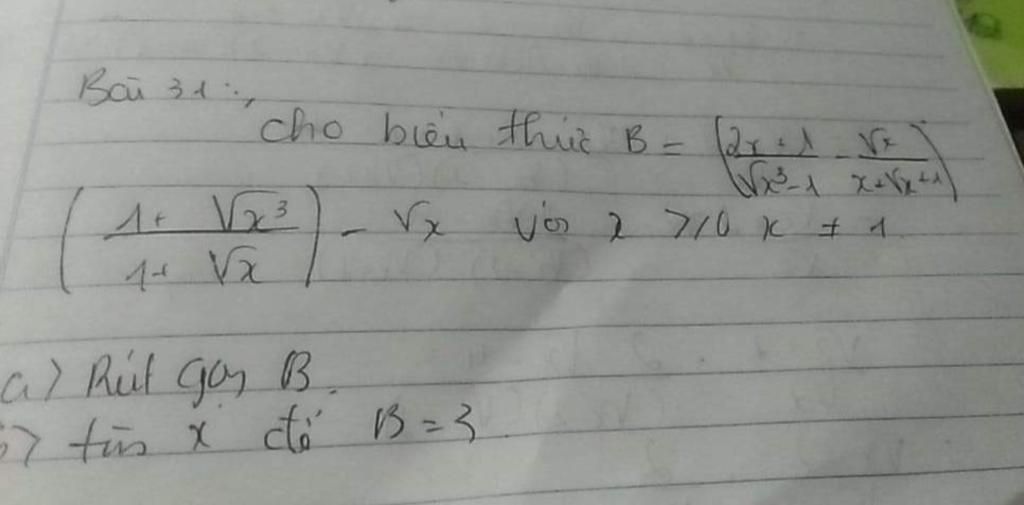 Bài 31:,
cho biểu thức B = (2x+1/√x³-1 - √x/x+√x+1)
(1+ √x³/1+ √x) - √x với x ≥ 0 x ≠ 1
a) Rút gọn B.
b) tìm x để B = 3.